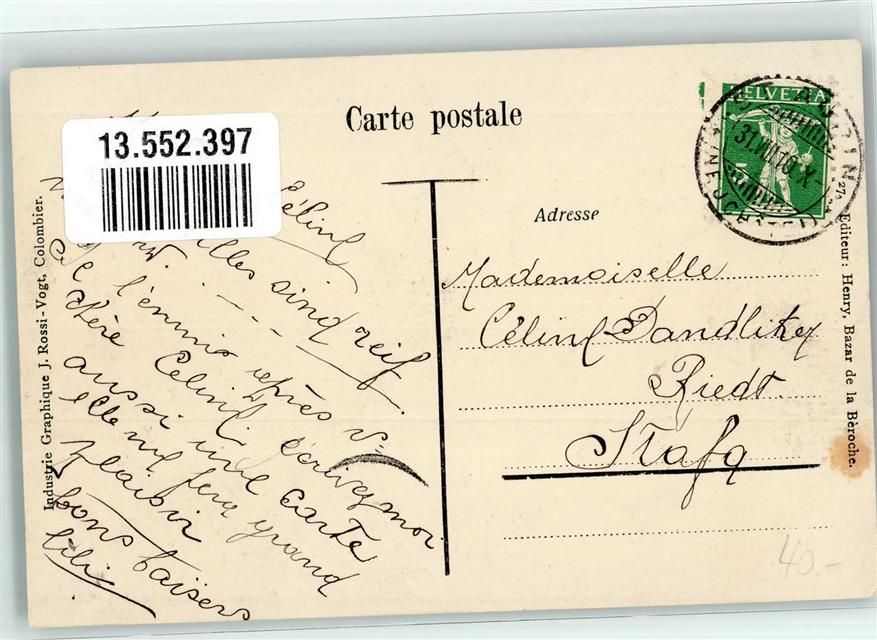 Carte postale
13.552.397
HELVETIA
ST. AUBIN
(NEUCHÂTEL)
Adresse
Mademoiselle
Céline Dandliker
Riedt.
Stäfa
Céline
sind reif
l'ennui après
Chère Céline écrivez moi
aussi une carte
elle me fera grand
plaisir
bons baisers
Lili
Industrie Graphique J. Rossi-Vogt, Colombier.
Editeur: Henry, Bazar de la Bèroche.
40.-